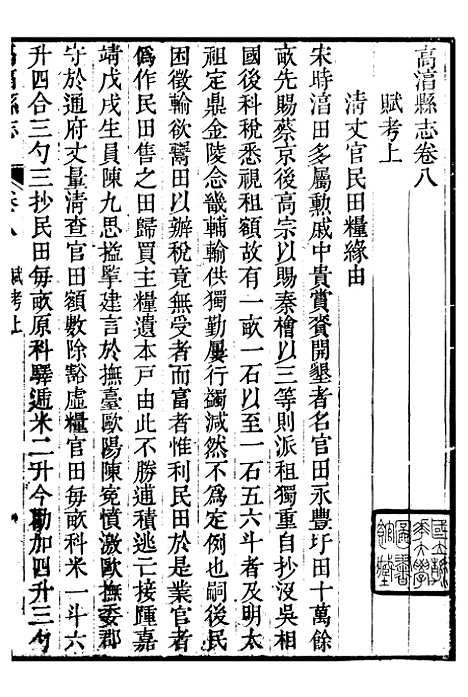 高淳縣志卷八
賦考上
清丈官民田糧緣由
宋時淯田多屬勲戚中貴賞賚開墾者名官田永豐圩田十萬餘
畝先賜蔡京後高宗以賜秦檜以三等則派租獨重自抄沒吳相
國後科稅悉視租額故有一畝一石以至一石五六斗者及明太
祖定鼎金陵念畿輔輸供獨勤屢行蠲減然不爲永例也嗣後民
困徵輸欲鬻田以辦稅竟無受者而富者惟利民田於是業官者
僞作民田售之田歸買主糧遺本戶由此不勝逋積逃亡接踵嘉
靖戊戌生員陳九思搤擥建言於撫臺歐陽陳寃憤激歐撫委郡
守於通府丈量清查官田額數除豁虛糧官田每畝科米一斗六
升四合三勺三抄民田每畝原科驛遞米二升今勸加四升三勺
高淳縣志
卷八
賦考上
國立
大學
圖書